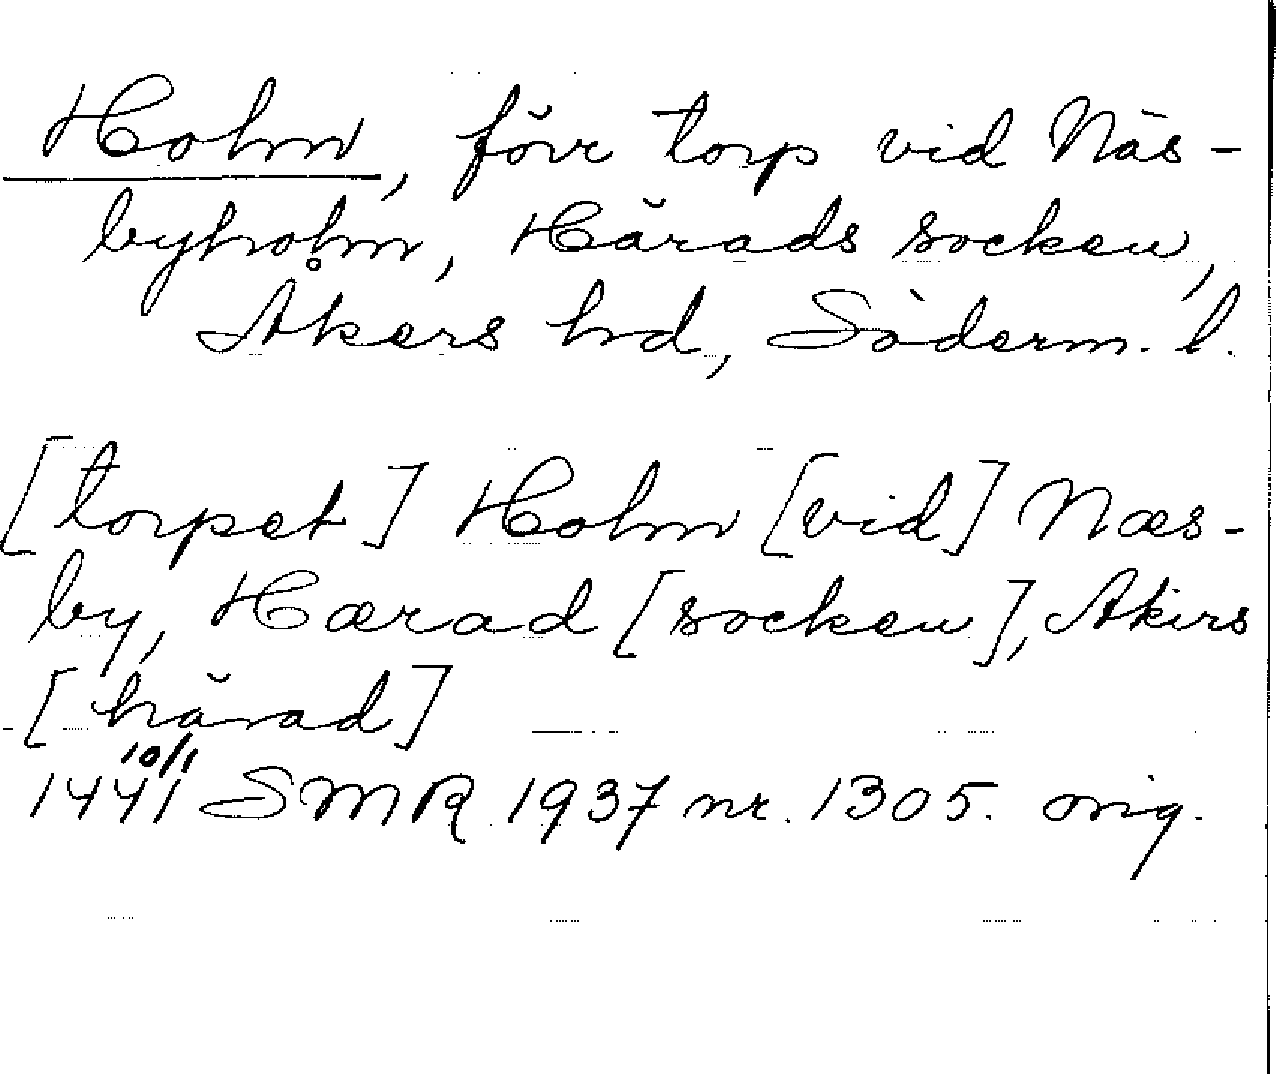 Holm, förr torp vid Näs-
byholm, Härads socken,
Åkers hd, Söderm. l.
[torpet] Holm [vid] Næs-
by, Hærad [socken], Akirs
[härad]
10/1
1441 SMR 1937 nr. 1305. orig.